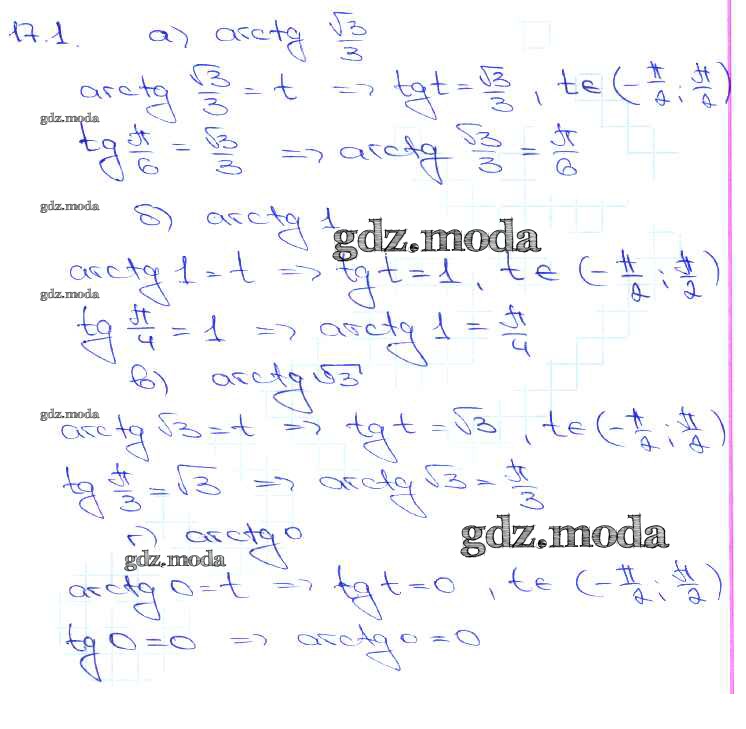 17.1. а) arctg √3/3
arctg √3/3 = t => tg t = √3/3, t ∈ (-π/2; π/2)
gdz.moda
tg π/6 = √3/3 => arctg √3/3 = π/6
gdz.moda
б) arctg 1
gdz.moda
arctg 1 = t => tg t = 1, t ∈ (-π/2; π/2)
gdz.moda
tg π/4 = 1 => arctg 1 = π/4
в) arctg √3
gdz.moda
arctg √3 = t => tg t = √3, t ∈ (-π/2; π/2)
tg π/3 = √3 => arctg √3 = π/3
г) arctg 0
gdz.moda
gdz.moda
arctg 0 = t => tg t = 0, t ∈ (-π/2; π/2)
tg 0 = 0 => arctg 0 = 0